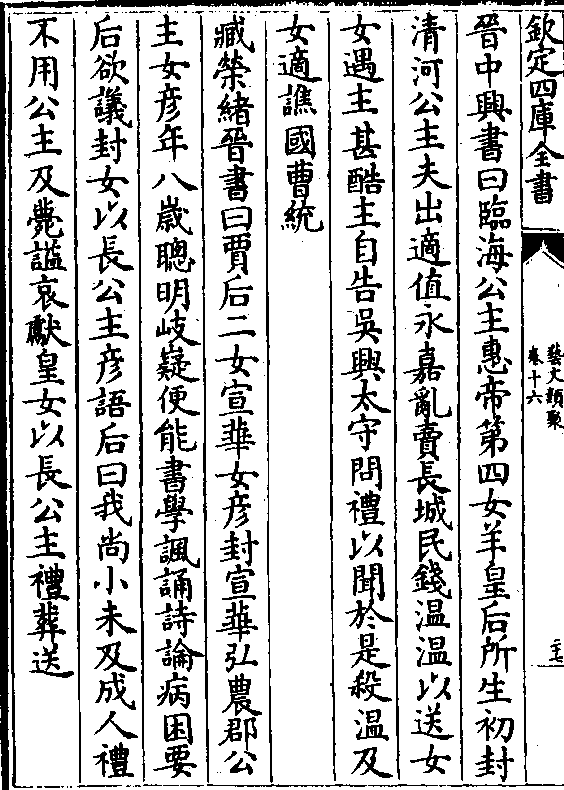 欽定四庫全書
藝文類聚
卷十六
二七
晉中興書曰臨海公主惠帝第四女羊皇后所生初封
清河公主夫出適值永嘉亂賣長城民錢温温以送女
女遇主甚酷主自告吳興太守問禮以聞於是殺温及
女適譙國曹統
臧榮緒晉書曰賈后二女宣華女彥封宣華弘農郡公
主女彥年八歲聰明岐嶷便能書學諷誦詩論病困要
后欲議封女以長公主彥語后曰我尚小未及成人禮
不用公主及薨諡哀獻皇女以長公主禮葬送